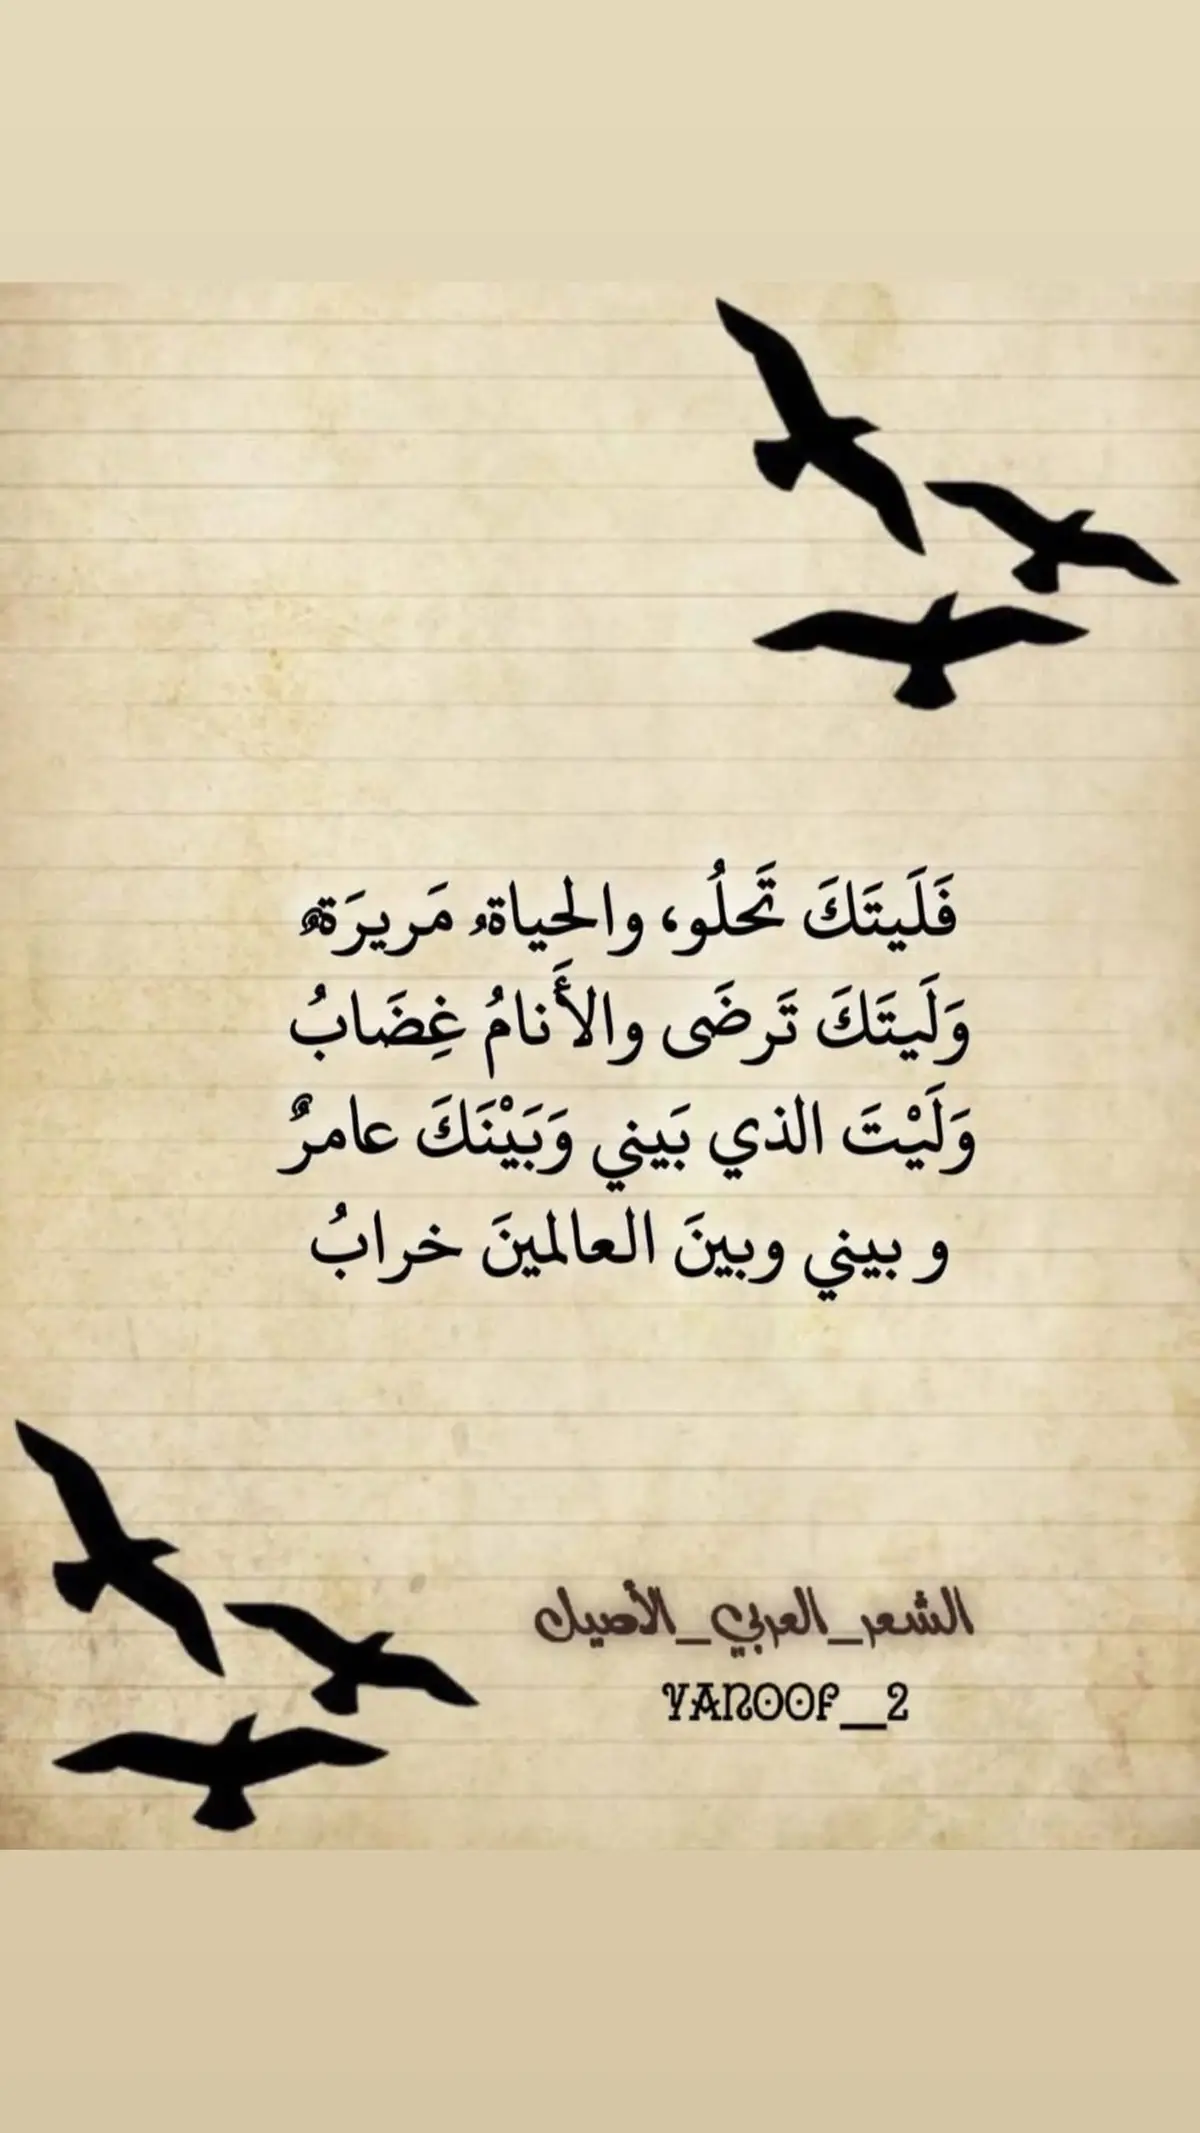 فَلَيتَكَ تَحلُو، والحياةُ مَريرَةٌ
وَلَيتَكَ تَرضَى والأَنامُ غِضَابُ
وَلَيْتَ الذي بَيني وَبَيْنَكَ عامرٌ
و بيني وبينَ العالمينَ خرابُ
الشعر_العربي_الأصيل
YANOOF__2